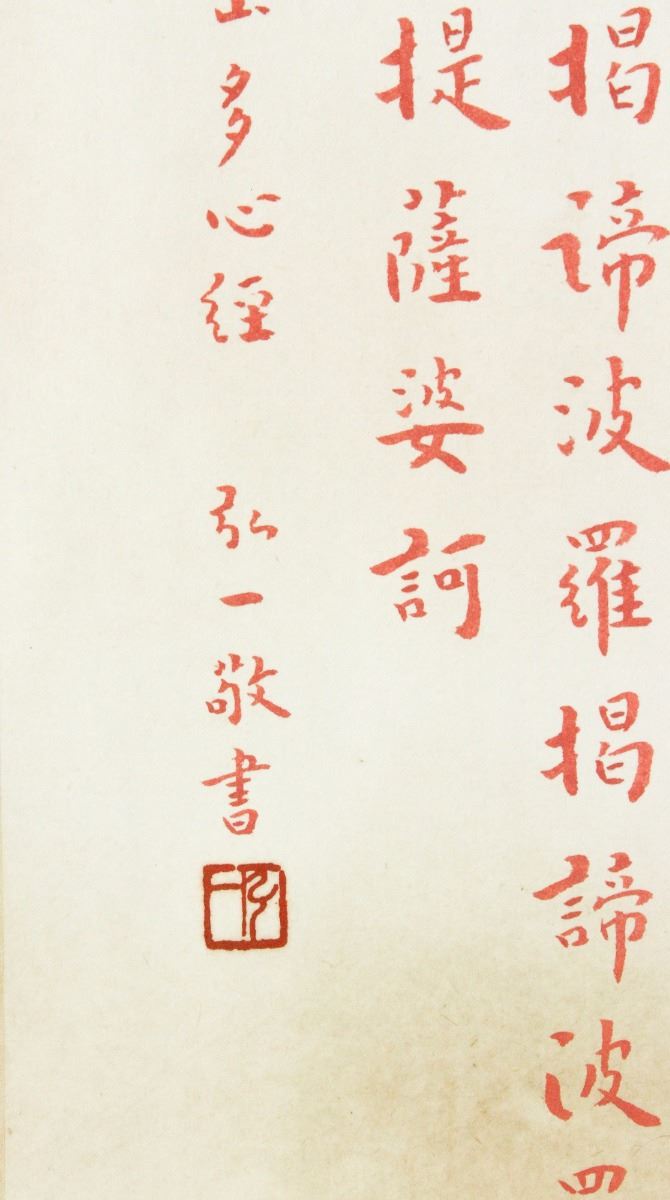 揭諦波羅揭諦波
提薩婆訶
多心經 弘一敬書